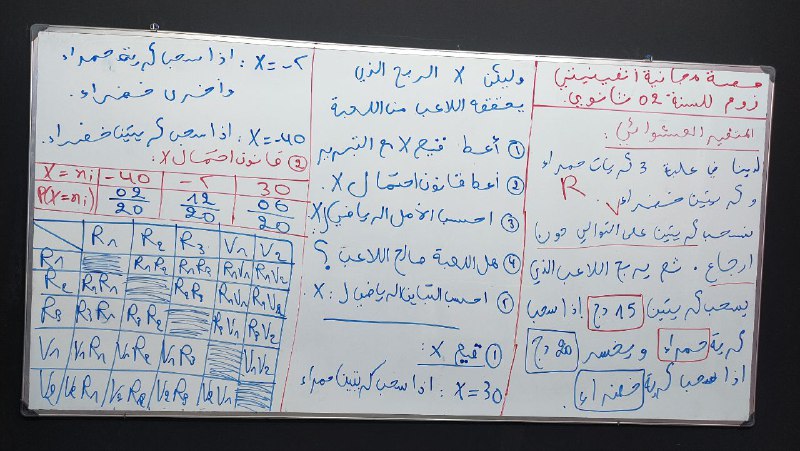 حصة مجانية أنفينيتي
زوم للسنة 02 ثانوي.
المتغير العشوائي:
لدينا في علبة 3 كريات حمراء
R
و كريتين خضراء.
V
نسحب كريتين على التوالي دون
إرجاع. ثم يربح اللاعب الذي
يسحب كريتين 15 دج إذا سحب
كرية حمراء و يخسر 20 دج
إذا سحب كرية خضراء.
وليكن X الربح الذي
يحققه اللاعب من اللعبة
① أعط قيم X مع التبرير
② أعط قانون احتمال X.
③ احسب الأمل الرياضي لـ X
④ هل اللعبة صالح اللاعب ؟
⑤ احسب التباين الرياضي لـ: X.
① قيم X:
X=30 : إذا سحب كريتين حمراء
X=-5 : إذا سحب كرية حمراء
وأخرى خضراء.
X=-40 : إذا سحب كريتين خضراء.
② قانون احتمال X:
X=xi -40 -5 30
P(X=xi) 02/20 12/20 06/20
R1 R2 R3 V1 V2
R1 R1R2 R1R3 R1V1 R1V2
R2 R2R1 R2R3 R2V1 R2V2
R3 R3R1 R3R2 R3V1 R3V2
V1 V1R1 V1R2 V1R3 V1V2
V2 V2R1 V2R2 V2R3 V2V1